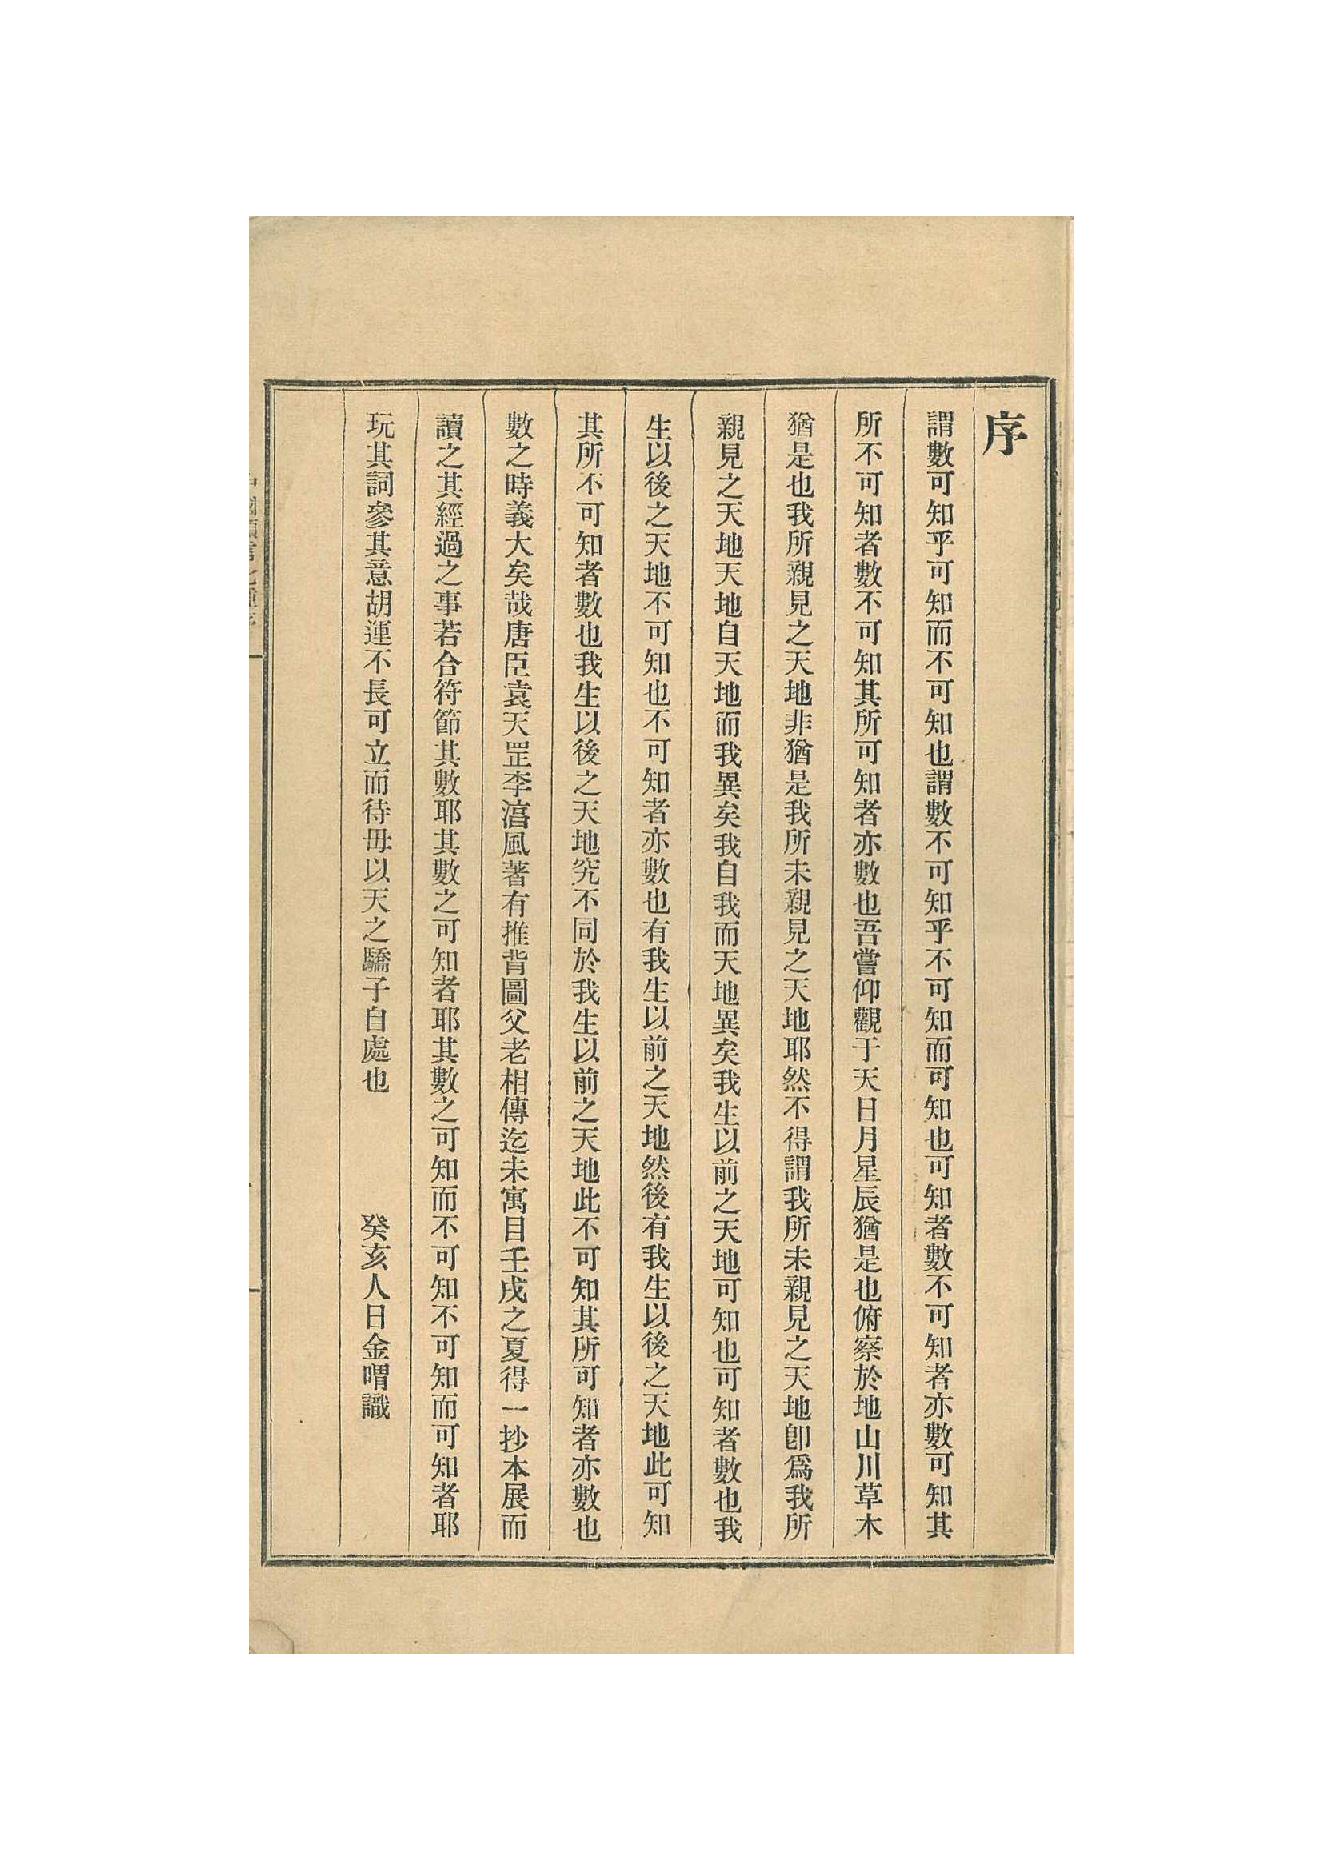 序
謂數可知乎可知而不可知也謂數不可知乎不可知而可知也可知者數不可知者亦數可知其
所不可知者數不可知其所可知者亦數也吾嘗仰觀于天日月星辰猶是也俯察於地山川草木
猶是也我所親見之天地非猶是我所未親見之天地耶然不得謂我所未親見之天地卽爲我所
親見之天地天地自天地而我異矣我自我而天地異矣我生以前之天地可知也可知者數也我
生以後之天地不可知也不可知者亦數也有我生以前之天地然後有我生以後之天地此可知
其所不可知者數也我生以後之天地究不同於我生以前之天地此不可知其所可知者亦數也
數之時義大矣哉唐臣袁天罡李淯風著有推背圖父老相傳迄未寓目壬戌之夏得一抄本展而
讀之其經過之事若合符節其數耶其數之可知者耶其數之可知而不可知不可知而可知者耶
玩其詞參其意胡運不長可立而待毋以天之驕子自處也
癸亥人日金喟識